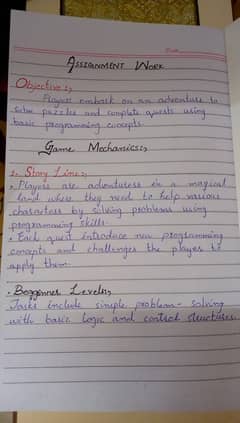 Date
ASSIGNMENT WORK
Objective:,
Players embark on an adventure to
solve puzzles and complete quests using
basic programming concepts.
Game Mechanics:,
1. Story Line:,
• Players are adventurers in a magical
land where they need to help various
characters by solving problems using
programming skills.
• Each quest introduce new programming
concept and challenges the players to
apply them.
• Begginner Levels:,
Tasks include simple problem-solving
with basic logic and control structures.